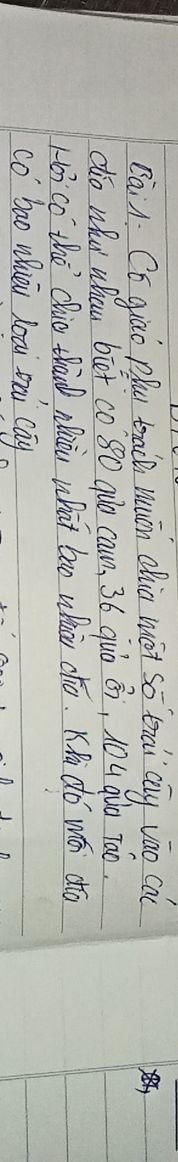 Bài 1. Cô giáo phụ trách muốn chia một số trái cây vào các
đĩa như nhau biết có 80 quả cam, 36 quả ổi, 104 quả táo.
Hỏi có thể chia thành nhiều nhất bao nhiêu đĩa. Khi đó mỗi đĩa
có bao nhiêu loại trái cây